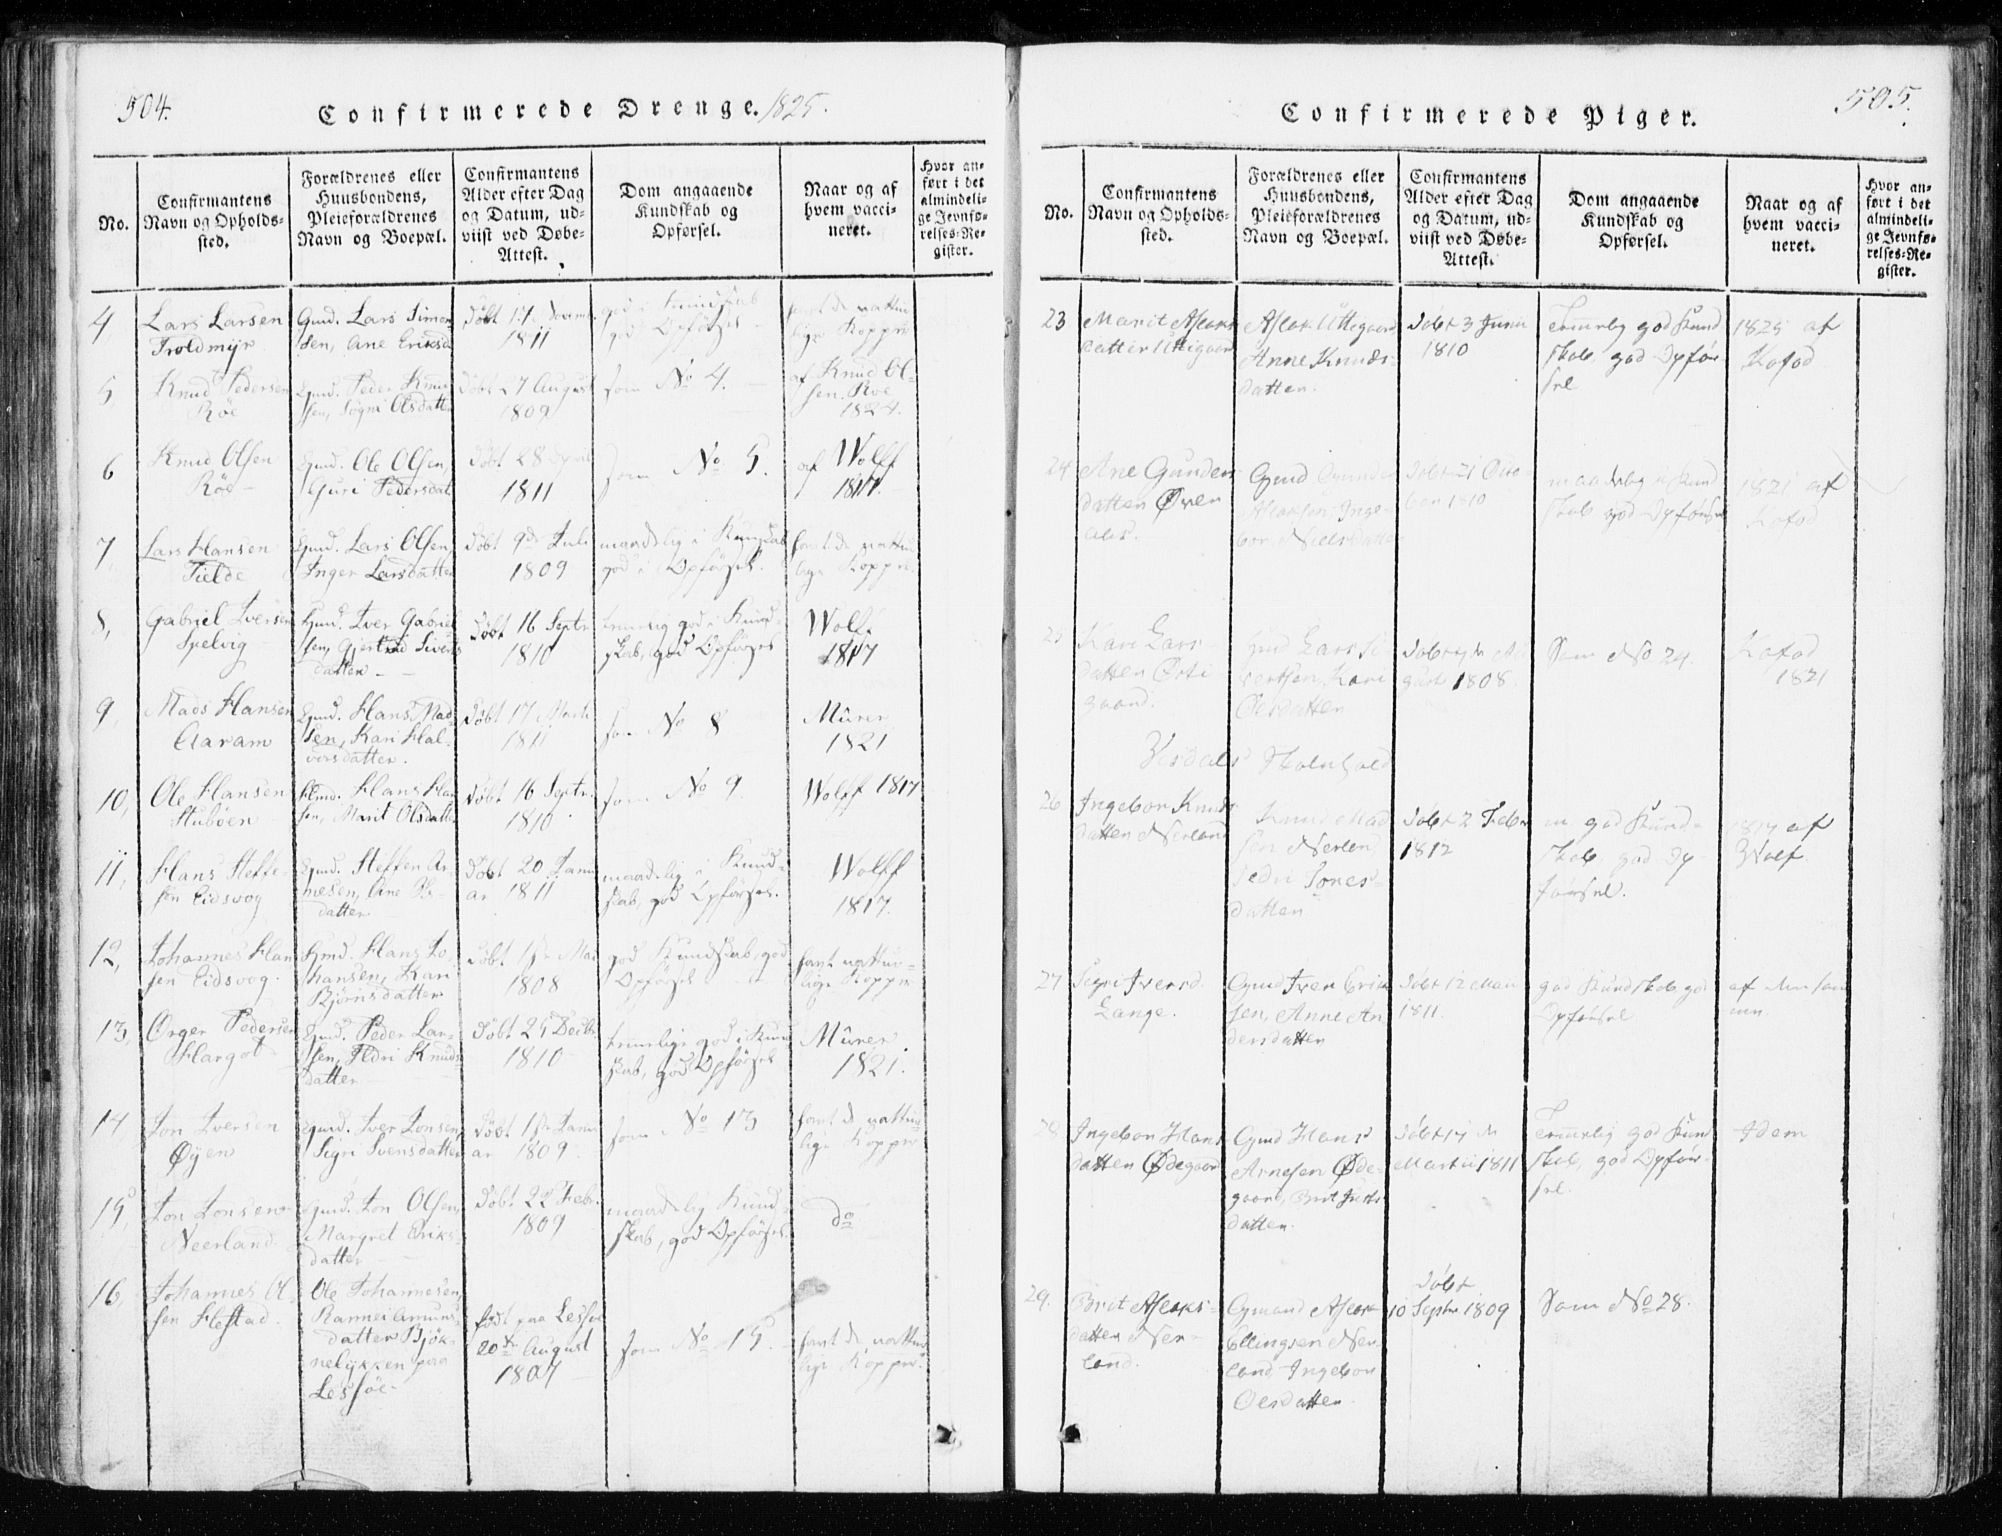 504.
Confirmerede Drenge. 1825.
No.
Confirmantens
Navn og Opholds-
sted.
Forældrenes eller
Huusbondens,
Pleieforældrenes
Navn og Boepæl.
Confirmantens
Alder efter Dag
og Datum, ud-
viist ved Døbe-
Attest.
Dom angaaende
Kundskab og
Opførsel.
Naar og af
hvem vacci-
neret.
Hvor an-
ført i det
almindeli-
ge Jevnfø-
relses-Re-
gister.
4
Lars Larsen
Troldmyr
Gmd. Lars Simon-
sen, Ane Eriksd
Døbt 17 Novemb.
1811
god i Kundskab
god Opførsel
havt de nattur
lige Kopper
5
Knud Pedersen
Röe
Gmd. Peder Knud
sen, Sogni Olsdatter
Døbt 27 August
1809
som No 4.
af Knud Ol-
sen Roe
1824.
6
Knud Olsen
Röe
Gmd. Ole Olsen,
Guri Pedersdat
Døbt 28 April
1811
som No 5.
af Wolff
1817.
7,
Lars Hansen
Tielde
Gmd. Lars Olsen,
Inger Larsdatter
Döbt 9de Juli
1809
maadelig i Kundskab
god i Opførsel.
havt de nattur
lige Kopper.
8,
Gabriel Iversen
Spelvig
Gmd. Iver Gabriel
sen, Gjertrud Sivers
datter
Døbt 16 Septr
1810
temelig god i Kund-
skab, god Opførsel
Wolff
1817
9,
Mads Hansen
Aaram
Gmd. Hans Mad-
sen, Kari Hal-
vorsdatter.
Døbt 17 Marti
1811
som No 8
Mürer
1821
10,
Ole Hansen
Stubøen
Hmd. Hans Han
sen, Marit Olsdatter
Døbt 16 Septr.
1810
som No 9
Wolff 1817
11,
Hans Steffe-
sen Eidsvog
Gmd. Steffen Ar-
nesen, Ane
datter
Döbt 20 Janu
ar 1811
maadelig i Kund-
skab, god Opførsel.
Wolff
1817.
12,
Johannes Han
sen Eidsvog.
Hmd. Hans Jo-
hansen, Kari
Björnsdatter
Døbt 1ste Mai
1808
god Kundskab, god
Opførsel
havt nattur-
lige Kopper
13,
Örger Pedersen
Hargot
Gmd. Peder Lar-
sen, Sedri Knuds
datter
Døbt 25 Decbr
1810
temelig god i Kund
skab, god Opførsel
Mürer
1821.
14
Jon Iversen
Öyen
Gmd. Iver Jonsen,
Sigri Svensdatter
Døbt 1ste Janu
ar 1809
som No 13
havt de nattur
lige Kopper
15,
Jon Jonsen
Neerland
Gmd. Jon Olsen,
Margret Eriks-
datter
Døbt 22 Febr.
1809
maadelig Kund-
skab, god Opførsel.
do
16,
Johannes Ol-
sen Hestad.
Ole Johannesen,
Rannei Amuns-
datter Bjök-
nelykken paa
Lessöe
födt paa Lessøe
20de August
1807
som No 15.
havt de nattur
lige Kopper.
505.
Confirmerede Piger.
No.
Confirmantens
Navn og Opholds-
sted.
Forældrenes eller
Huusbondens,
Pleieforældrenes
Navn og Boepæl.
Confirmantens
Alder efter Dag
og Datum, ud-
viist ved Døbe-
Attest.
Dom angaaende
Kundskab og
Opførsel.
Naar og af
hvem vacci-
neret.
Hvor an-
ført i det
almindeli-
ge Jevnfø-
relses-Re-
gister.
23
Marit Aslaks
datter Uttigaard
Aslak Uttegaard
Anne Knuds-
datter.
Døbt 3 Junii
1810
Temelig god Kund
skab, god Opfør-
sel
1825 af
Kofod
24
Ane Gunder
datter Øver
aas.
Gmd Gunder
Aslaksen, Inge-
bor Nielsdatter
Døbt 21 Octo
ber 1810
maadelig i Kund
skab god Opførsel
1821 af
Kofod
25
Kari Lars-
datter Østi
gaard.
Gmd Lars Si
vertsen, Kari
Olsdatter
Døbt 4de Au
gust 1808.
Som No 24.
Kofod
1821
Visdals Skolehold
26
Ingebor Knuds
datter Nerland
Knud Mad
sen Nerlen,
Sedri Jones-
datter
Døbt 2 Febr
1812
god Kund-
skab, god Op-
førsel.
1817 af
Wolf.
27
Sigri Iversd.
Lange.
Gmd Iver Erik
sen, Anne An
dersdatter
Døbt 12 Mai
1811.
god Kundskab, god
Opførsel
af den sam
me
28
Ingebor Hans
datter Ødegaard
Gmd Hans
Arnesen Øde-
gaard, Brit
datter.
Døbt 17 de
Martii 1811
Temelig god Kund
skab, god Opfør-
sel.
Idem
29.
Brit Aslaks-
datter Ner-
land.
Gmand Aslak
Ellingsen Ner
land, Ingebor
Olsdatter
Døbt
10 Septbr 1809
Som No 28.